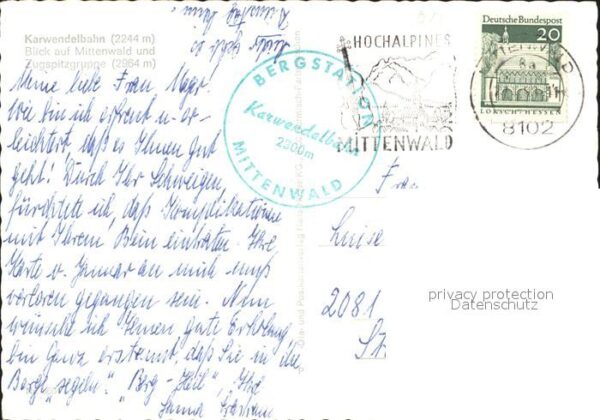 Karwendelbahn (2244 m)
Blick auf Mittenwald und
Zugspitzgruppe (2964 m)
Meine liebe Frau
Wie bin ich erfreut u. er-
leichtert, daß es Ihnen gut
geht! Durch Ihr Schweigen
fürchtete ich, daß Komplikationen
mit Ihrem Bein eintraten. Ihre
Karte v. Januar an mich muß
verloren gegangen sein. Nun
wünsche ich Ihnen gute Erholung,
bin ganz erstaunt, daß Sie in die
Berge "segeln". "Berg-Heil", Ihre
BERGSTATION
Karwendelbahn
2300m
MITTENWALD
HOCHALPINES
MITTENWALD
Deutsche Bundespost
20
LORSCH/HESSEN
8102
Frau
Luise
2081
privacy protection
Datenschutz